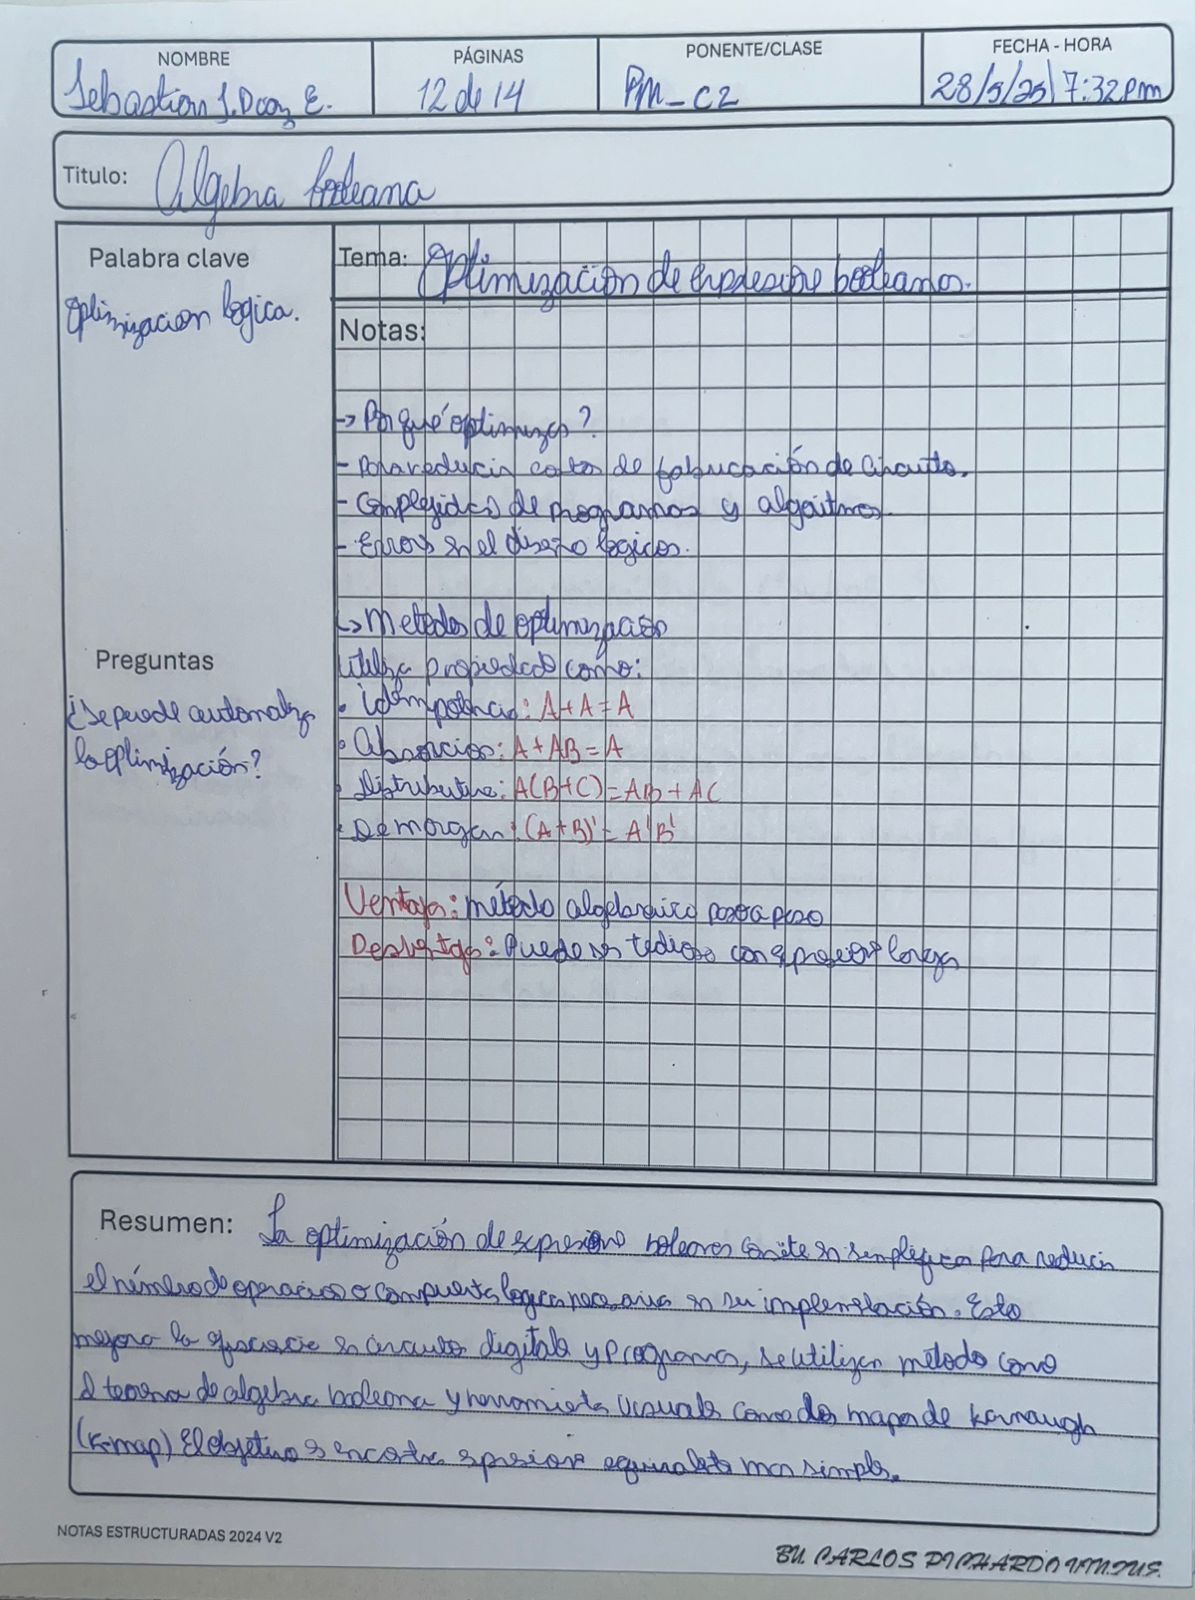 NOMBRE
PÁGINAS
PONENTE/CLASE
FECHA - HORA
Sebastian J. Diaz E.
12 de 14
PM_C2
28/5/25 7:32pm
Titulo: Algebra booleana
Palabra clave
Optimizacion logica.
Tema: Optimización de expresione booleanas.
Notas:
-> Por qué optimizar?
- Para reducir costos de fabricación de circuito.
- Complejidad de programas y algoritmos
- Errores en el diseño logicos.
↳ Metodos de optimización
Utiliza propiedades como:
• idempotencia: A+A=A
• Absorcion: A+AB=A
• Distributiva: A(B+C)=AB+AC
• De morgan: (A+B)'= A'B'
Ventaja: método algebraico paso a paso
Desventaja: Puede ser tedioso con expresion larga
Preguntas
¿Se puede automatizar
la optimización?
Resumen: La optimización de expresione booleanas consiste en simplificar para reducir
el número de operacion o compuerta logica necesaria en su implementación. Esto
mejora la eficiencia en circuitos digitales y programas, se utilizan método como
teorema de algebra booleana y herramienta visuales como los mapas de Karnaugh
(K-map) El objetivo es encontrar expresion equivalente mas simple.
NOTAS ESTRUCTURADAS 2024 V2
BY. CARLOS PICHARDO VIN.QUE.